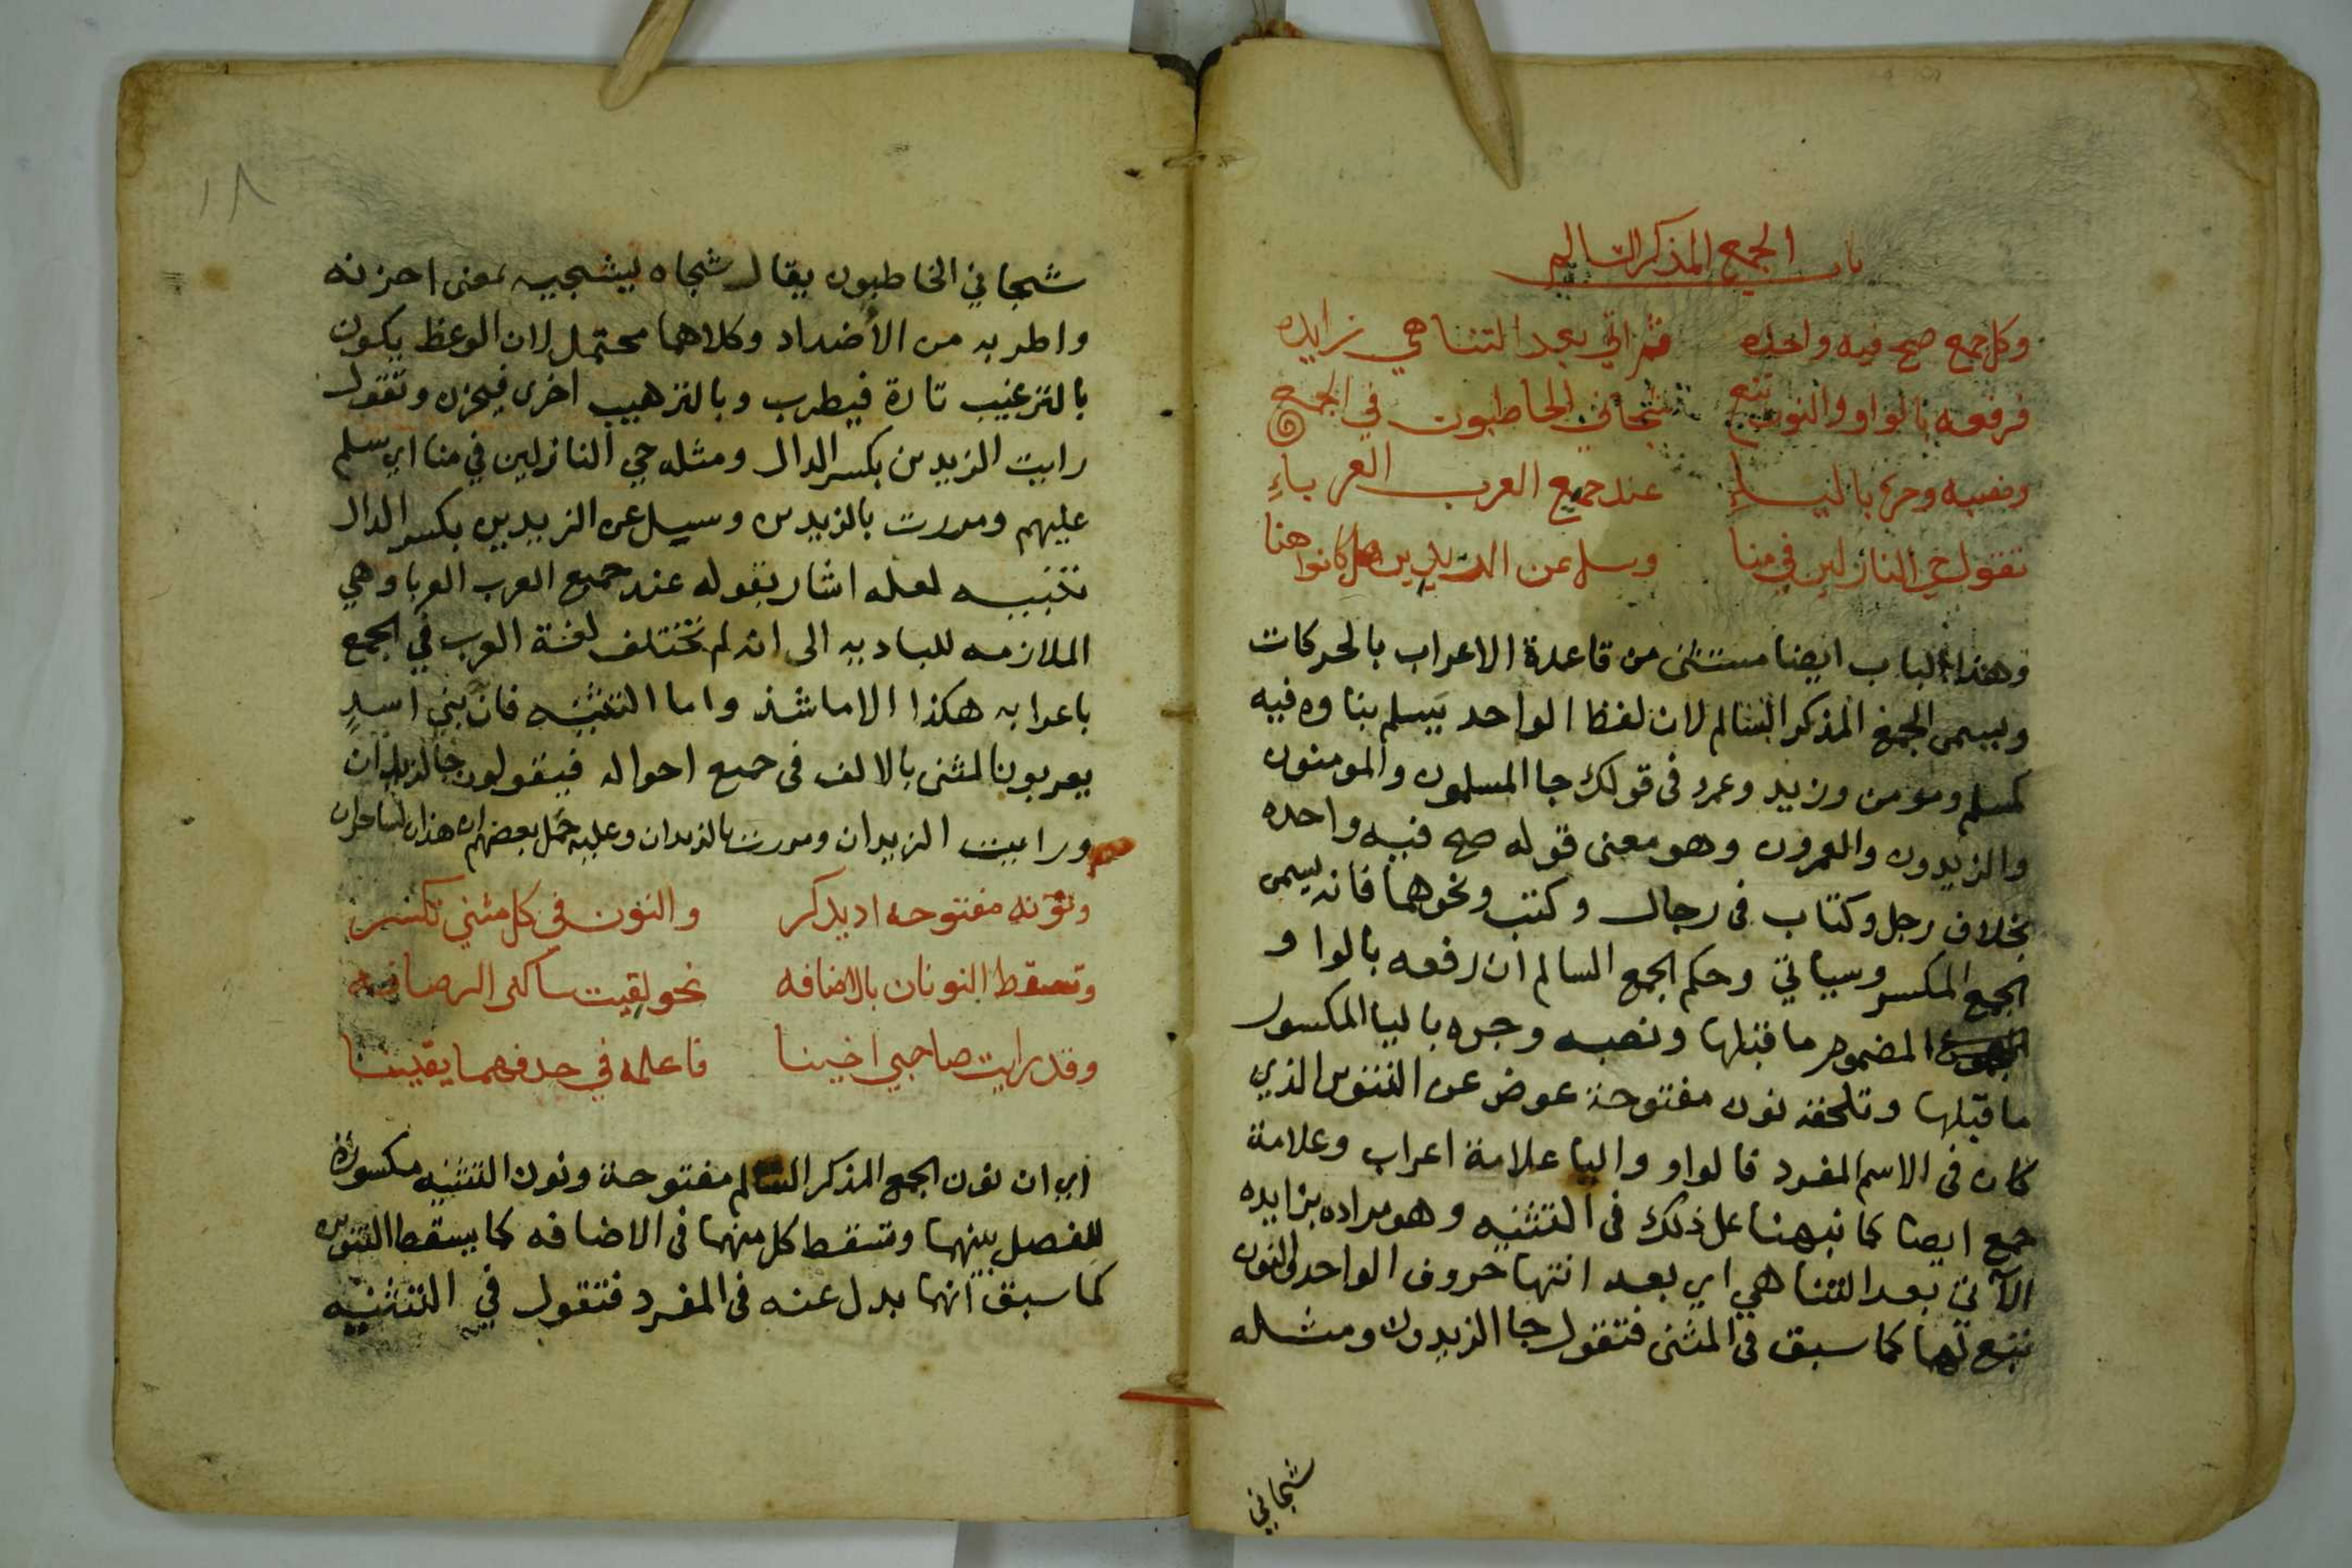 باب الجمع المذكر السالم
وكل جمع صح فيه واحده ثم اتى بعد التناهي زايده
فرفعه بالواو والنون تبع شجاني الخاطبون في الجمع
ونصبه وجره بالياء عند جميع العرب العرباء
تقول حي النازلين في منا وسل عن الزيدين هل كانوا هنا
وهذا الباب ايضا مستثنى من قاعدة الاعراب بالحركات
ويسمى الجمع المذكر السالم لان لفظ الواحد يسلم بناوه فيه
كمسلم ومومن وزيد وعمرو فى قولك جا المسلمون والمومنون
والزيدون والعمرون وهو معنى قوله صح فيه واحده
بخلاف رجل وكتاب فى رجال وكتب ونحوهما فانه يسمى
الجمع المكسر وسياتي وحكم الجمع السالم ان رفعه بالواو
المضموم ما قبلها ونصبه وجره باليا المكسور
ما قبلها وتلحقه نون مفتوحة عوض عن التنوين الذي
كان فى الاسم المفرد فالواو واليا علامة اعراب وعلامة
جمع ايضا كما نبهنا على ذلك فى التثنيه وهو مراده بزايده
الآتي بعد التناهي اي بعد انتها حروف الواحد والنون
تبع لهما كما سبق فى المثنى فتقول جا الزيدون ومثله
شجاني
١٨
شجاني الخاطبون يقال شجاه يشجيه بمعنى احزنه
واطربه من الأضداد وكلاهما محتمل لان الوعظ يكون
بالترغيب تارة فيطرب وبالترهيب اخرى فيحزن وتقول
رايت الزيدين بكسر الدال ومثله حي النازلين في منا اي سلم
عليهم ومررت بالزيدين وسيل عن الزيدين بكسر الدال
تنبيه لعله اشار بقوله عند جميع العرب العربا وهي
الملازمه للباديه الى انه لم تختلف لغة العرب في الجمع
باعرابه هكذا الا ما شذ واما التثنيه فان بني اسد
يعربون المثنى بالالف فى جميع احواله فيقولون جا الزيدان
ورايت الزيدان ومررت بالزيدان وعليه حمل بعضهم ان هذان لساحران
ونونه مفتوحه اذ يذكر والنون فى كل مثنى تكسر
وتسقط النونان بالاضافه نحو لقيت ساكنى الرصافه
وقد رايت صاحبي اخينا فاعلمه في حذفهما يقينا
اي ان نون الجمع المذكر السالم مفتوحة ونون التثنيه مكسورة
للفصل بينهما وتسقط كل منهما فى الاضافه كما يسقط التنوين
كما سبق انها بدل عنه فى المفرد فتقول في التثنيه